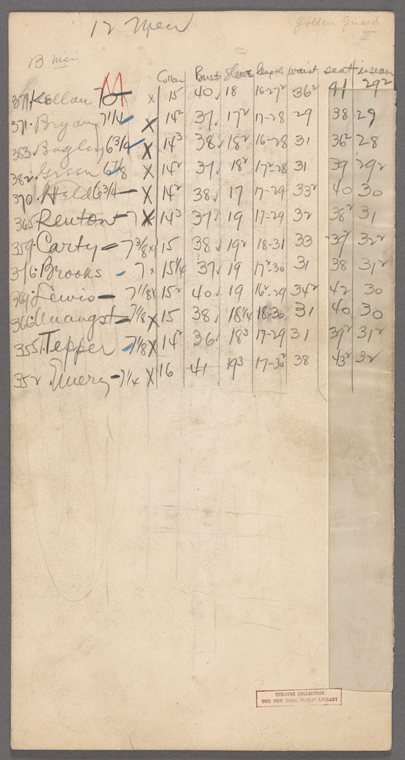 12 Men
Golden Guard
II
13 men
Collar Bust Sleeve length waist seat inseam
Kellam 7 x 15 40 18 16-27² 36² 41 29²
371. Bryan 7 1/4 x 14² 37. 17² 17-28 29 38 29
353. Bagley 6 3/4 x 14³ 38. 18² 16-28 31 36² 28
382. Green 6 7/8 x 14² 37. 18² 17²-28 31 39 29²
370. Held 6 3/4 - x 14² 38. 17 17-29 33² 40 30
365 Renton - 7 x 14³ 37. 19 17-29 32 38² 31
359. Carty - 7 3/8 x 15 38. 19² 18-31 33 39² 32²
376. Brooks - 7 x 15 1/4 37. 19 17²-30 31 38 31²
Lewis - 7 1/8 x 15² 40. 19 16²-29 34² 42 30
7 1/8 x 15 38. 18 1/4 18-30 31 40 30
355. Tepper - 7 1/8 x 14² 36. 18³ 17-29 31 39² 31²
352. Emery - 7 1/4 x 16 41 19³ 17-30² 38 43² 32
THEATRE COLLECTION
THE NEW YORK PUBLIC LIBRARY